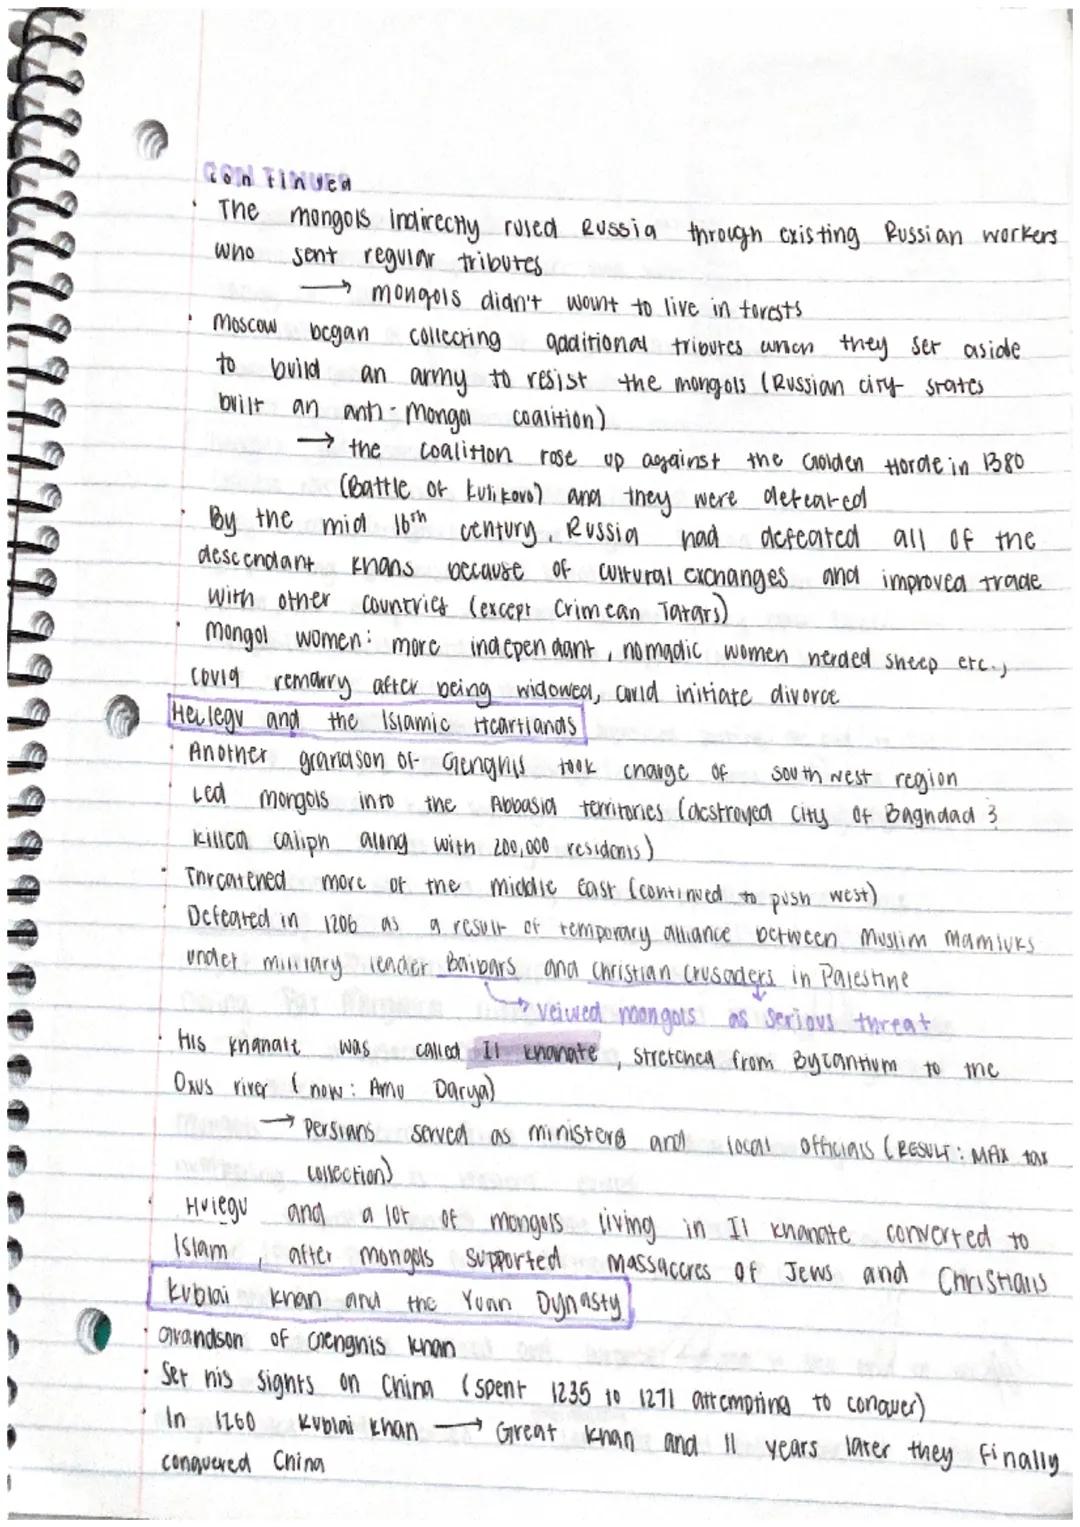 Continued
• The mongols indirectly ruled Russia through existing Russian workers
who sent regular tributes
→ mongols didn't want to live in forests
• Moscow began collecting additional tributes which they set aside
to build an army to resist the mongols (Russian city-states
built an anti-Mongol coalition)
→ the coalition rose up against the Golden Horde in 1380
(Battle of Kulikovo) and they were defeated
• By the mid 16th century, Russia had defeated all of the
descendant khans because of cultural exchanges and improved trade
with other countries (except Crimean Tatars)
• Mongol women: more independant, nomadic women herded sheep etc.,
could remarry after being widowed, could initiate divorce
Hulegu and the Islamic Heartlands
• Another grandson of Genghis took charge of southwest region
• Led mongols into the Abbasid territories (destroyed city of Baghdad &
killed caliph along with 200,000 residents)
• Threatened more of the middle East (continued to push west)
Defeated in 1206 as a result of temporary alliance between Muslim Mamluks
under military leader Baibars and Christian Crusaders in Palestine
→ veiwed mongols as serious threat
• His khanate was called Il khanate, stretched from Byzantium to the
Oxus river (now: Amu Darya)
→ Persians served as ministers and local officials (RESULT: MAX tax
collection)
• Hulegu and a lot of mongols living in Il khanate converted to
Islam, after mongols supported massacres of Jews and Christians
Kublai Khan and the Yuan Dynasty
• Grandson of Genghis Khan
• Set his sights on China (spent 1235 to 1271 attempting to conquer)
• In 1260 Kublai Khan → Great Khan and 11 years later they finally
conquered China